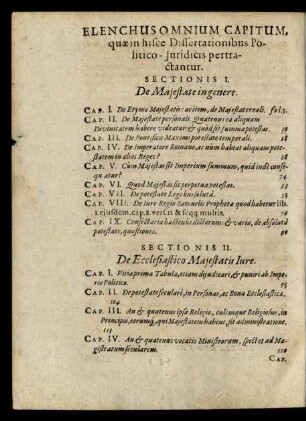 ELENCHUS OMNIUM CAPITUM,
quæ in hisce Dissertationibus Po-
litico-Juridicis pertra-
ctantur.
SECTIONIS I.
De Majestate in genere.
CAP. I. De Etymo Majestatis: ac item, de Majestate reali. fol. 3.
CAP. II. De Majestate personali. Quatenus ea aliquam
Divinitatem habere videatur: & quòd sit summa potestas. 30
CAP. III. De Pontificis Maximi potestate temporali. 38
CAP. IV. De Imperatore Romano, ac num habeat aliquam pote-
statem in alios Reges?
CAP. V. Cum Majestas sit Imperium summum, quid indè conse-
quatur? 74
CAP. VI. Quod Majestas sit perpetua potestas. 53
CAP. VII. De potestate Legibus solutâ.
CAP. VIII. De Jure Regio Samuelis Prophetæ quod habetur lib.
1. ejusdem, cap. 8. vers. 11. & seqq. multis. 78
CAP. IX. Consectaria hactenus dictorum: & variæ, de absolutâ
potestate, quæstiones.
SECTIONIS II.
De Ecclesiastico Majestatis Iure.
CAP. I. Vitia prima Tabula, etiam dijudicari, & puniri ab Impe-
rio Politico. 95
CAP. II. De potestate seculari, in Personas, ac Bona Ecclesiastica.
104
CAP. III. An & quatenus ipsa Religio, cultusque Religiosus, in
Principis, eorumq́, qui Majestatem habent, sit administratione.
113
CAP. IV. An & quatenus vocatio Ministrorum, spectet ad Ma-
gistratum secularem.
CAP.